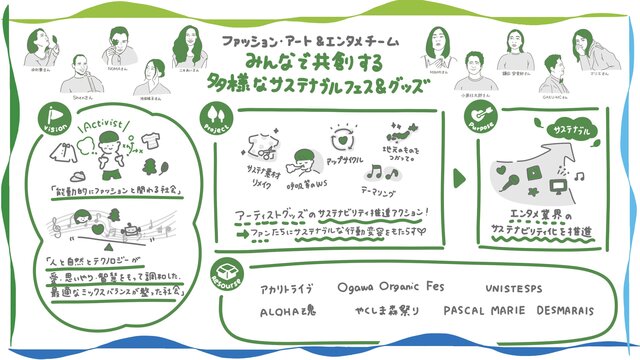 ファッション・アート&エンタメチーム
みんなで共創する
多様なサステナブルフェス&グッズ
NOMAさん
Shenさん
MAHOさん
小原壮太郎さん
Vision
Activist
「能動的にファッションと関わる社会」
「人と自然とテクノロジーが
愛・思いやり・智慧をもって調和した
最適なミックスバランスが整った社会」
Project
サステナ素材
リメイク
呼吸等のWS
アップサイクル
テーマソング
地元のものを
つかって。
アーティストグッズのサステナビリティ推進アクション!
→ファンたちにサステナブルな行動変容をもたらす
Purpose
サステナブル
エンタメ業界の
サステナビリティ化を推進
Resourse
アカリトライブ
Ogawa Organic Fes
UNISTEPS
ALOHA魂
やくしま森祭り
PASCAL MARIE DESMARAIS